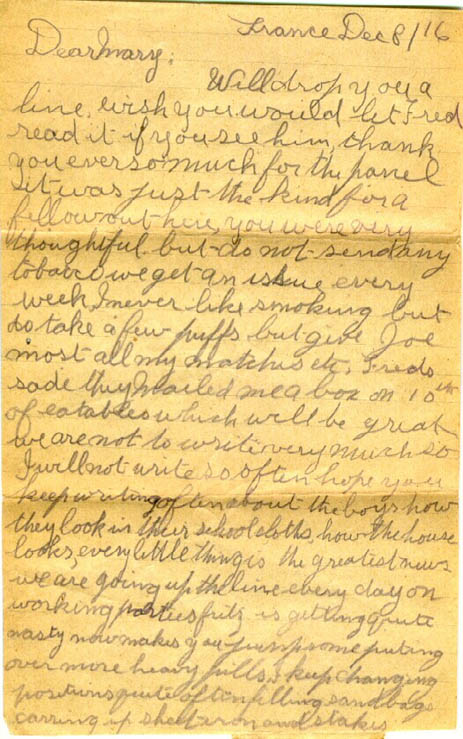 France Dec 8/16
Dear Mary;
Will drop you a
line, wish you would let Fred
read it if you see him, thank
you ever so much for the panel
it was just the kind for a
fellow out here, you were very
thoughtful but do not send any
tobaco we get an issue every
week, I never like smoking but
do take a few puffs but give Joe
most all my matches etc. Freds
sade they mailed me a box on 10th
of eatables which will be great
we are not to write very much so
I will not write so often hope you
keep writing often about the boys how
they look in their school cloths, how the house
looks, every little thing is the greatest news
we are going up the line every day on
working parties fritz is getting quite
nasty now makes you jump some puting
over more heavy pills, keep changing
positions quite often filling sandbags
carring up sheet iron and stakes